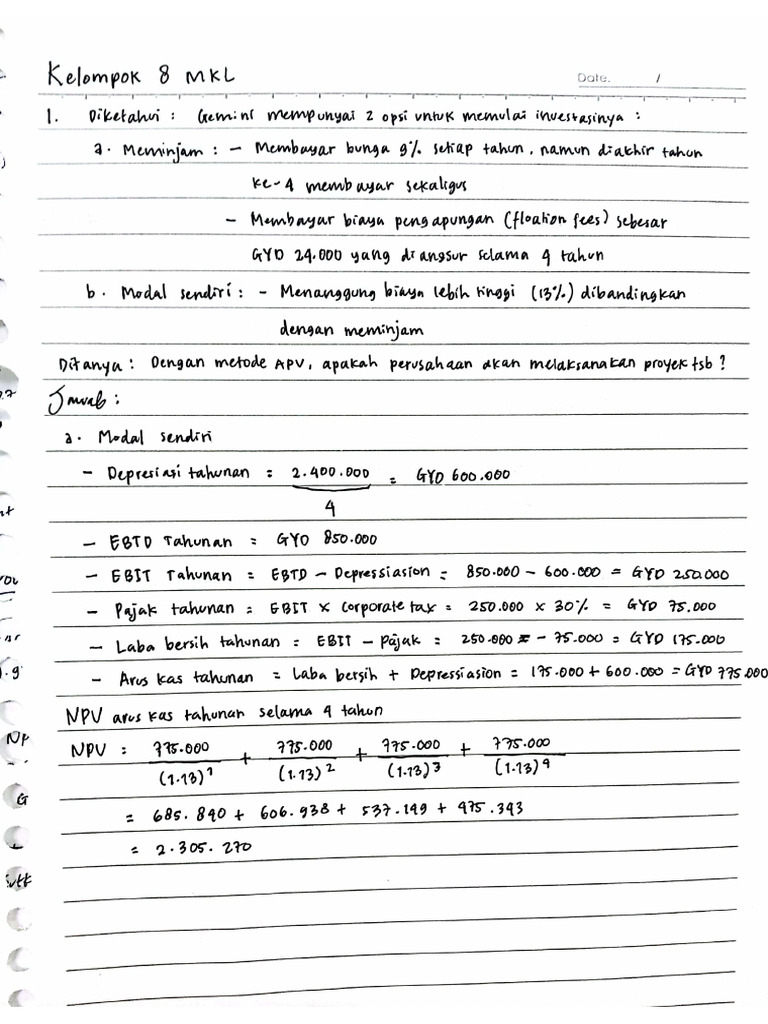 Kelompok 8 MKL
Date. /
1. Diketahui : Gemini mempunyai 2 opsi untuk memulai investasinya :
a. Meminjam : - Membayar bunga 9% setiap tahun, namun diakhir tahun
ke-4 membayar sekaligus
- Membayar biaya pengapungan (floation fees) sebesar
GYD 24.000 yang di angsur selama 4 tahun
b. Modal sendiri : - Menanggung biaya lebih tinggi (13%) dibandingkan
dengan meminjam
Ditanya : Dengan metode APV, apakah perusahaan akan melaksanakan proyek tsb ?
Jawab :
a. Modal sendiri
- Depresiasi tahunan = 2.400.000 = GYD 600.000
4
- EBTD Tahunan = GYD 850.000
- EBIT Tahunan = EBTD - Depressiasion = 850.000 - 600.000 = GYD 250.000
- Pajak tahunan = EBIT x Corporate tax = 250.000 x 30% = GYD 75.000
- Laba bersih tahunan = EBIT - Pajak = 250.000 - 75.000 = GYD 175.000
- Arus kas tahunan = Laba bersih + Depressiasion = 175.000 + 600.000 = GYD 775.000
NPV arus kas tahunan selama 4 tahun
NPV = 775.000 + 775.000 + 775.000 + 775.000
(1.13)¹ (1.13)² (1.13)³ (1.13)⁴
= 685.840 + 606.938 + 537.149 + 475.343
= 2.305.270